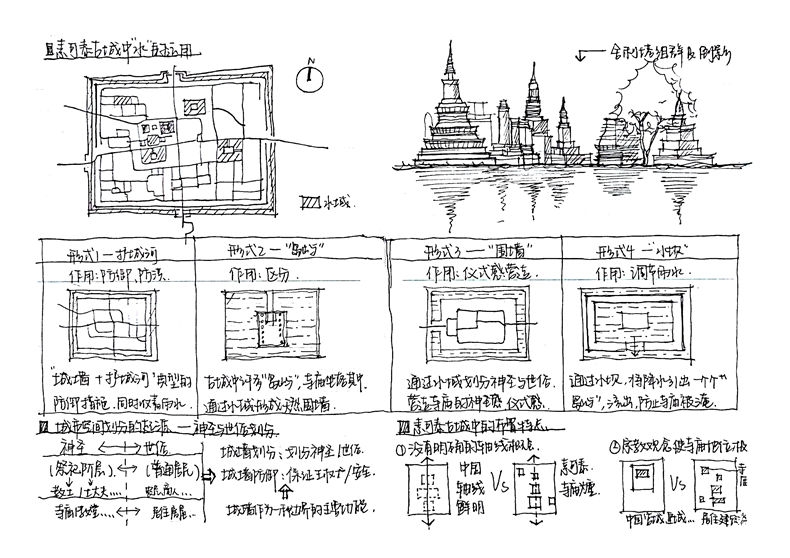 素可泰古城中"水"的运用
N
全水塔组群及倒影
水域
形式1—护城河
作用:防御,防洪
"城墙+护城河"典型的
防御措施,同时收集雨水
形式2—"岛屿"
作用:区分
古城中许多"岛屿",寺庙坐落其中
通过水域形成天然围墙
形式3—"围墙"
作用:仪式感营造
通过水域划分神圣与世俗
营造寺庙的神圣感 仪式感
形式4—"水坝"
作用:调节雨水
通过水坝,将降水引出一个个
"岛屿",流出,防止寺庙被淹
城市空间划分的 — 神圣与世俗划分
神圣 世俗
(祭祀阶层) (普通居民)
教士/士大夫.... 商人...
寺庙 .... 居住房屋....
城墙划分:划分神圣/世俗
城墙防御:保证王权/安全
城墙作为一种边界的主要功能
素可泰古城中的布置特点
①没有明确的中轴线概念
中国
轴线
鲜明
VS
素可泰
寺庙
②宗教观念使寺庙
VS
寺庙
中国 居住建筑